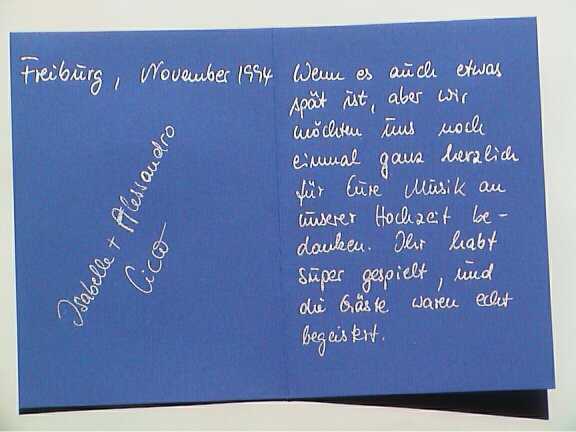 Freiburg, November 1994
Isabelle + Alessandro
Wenn es auch etwas
spät ist, aber wir
möchten uns noch
einmal ganz herzlich
für Eure Musik an
unserer Hochzeit be-
danken. Ihr habt
super gespielt, und
die Gäste waren echt
begeistert.